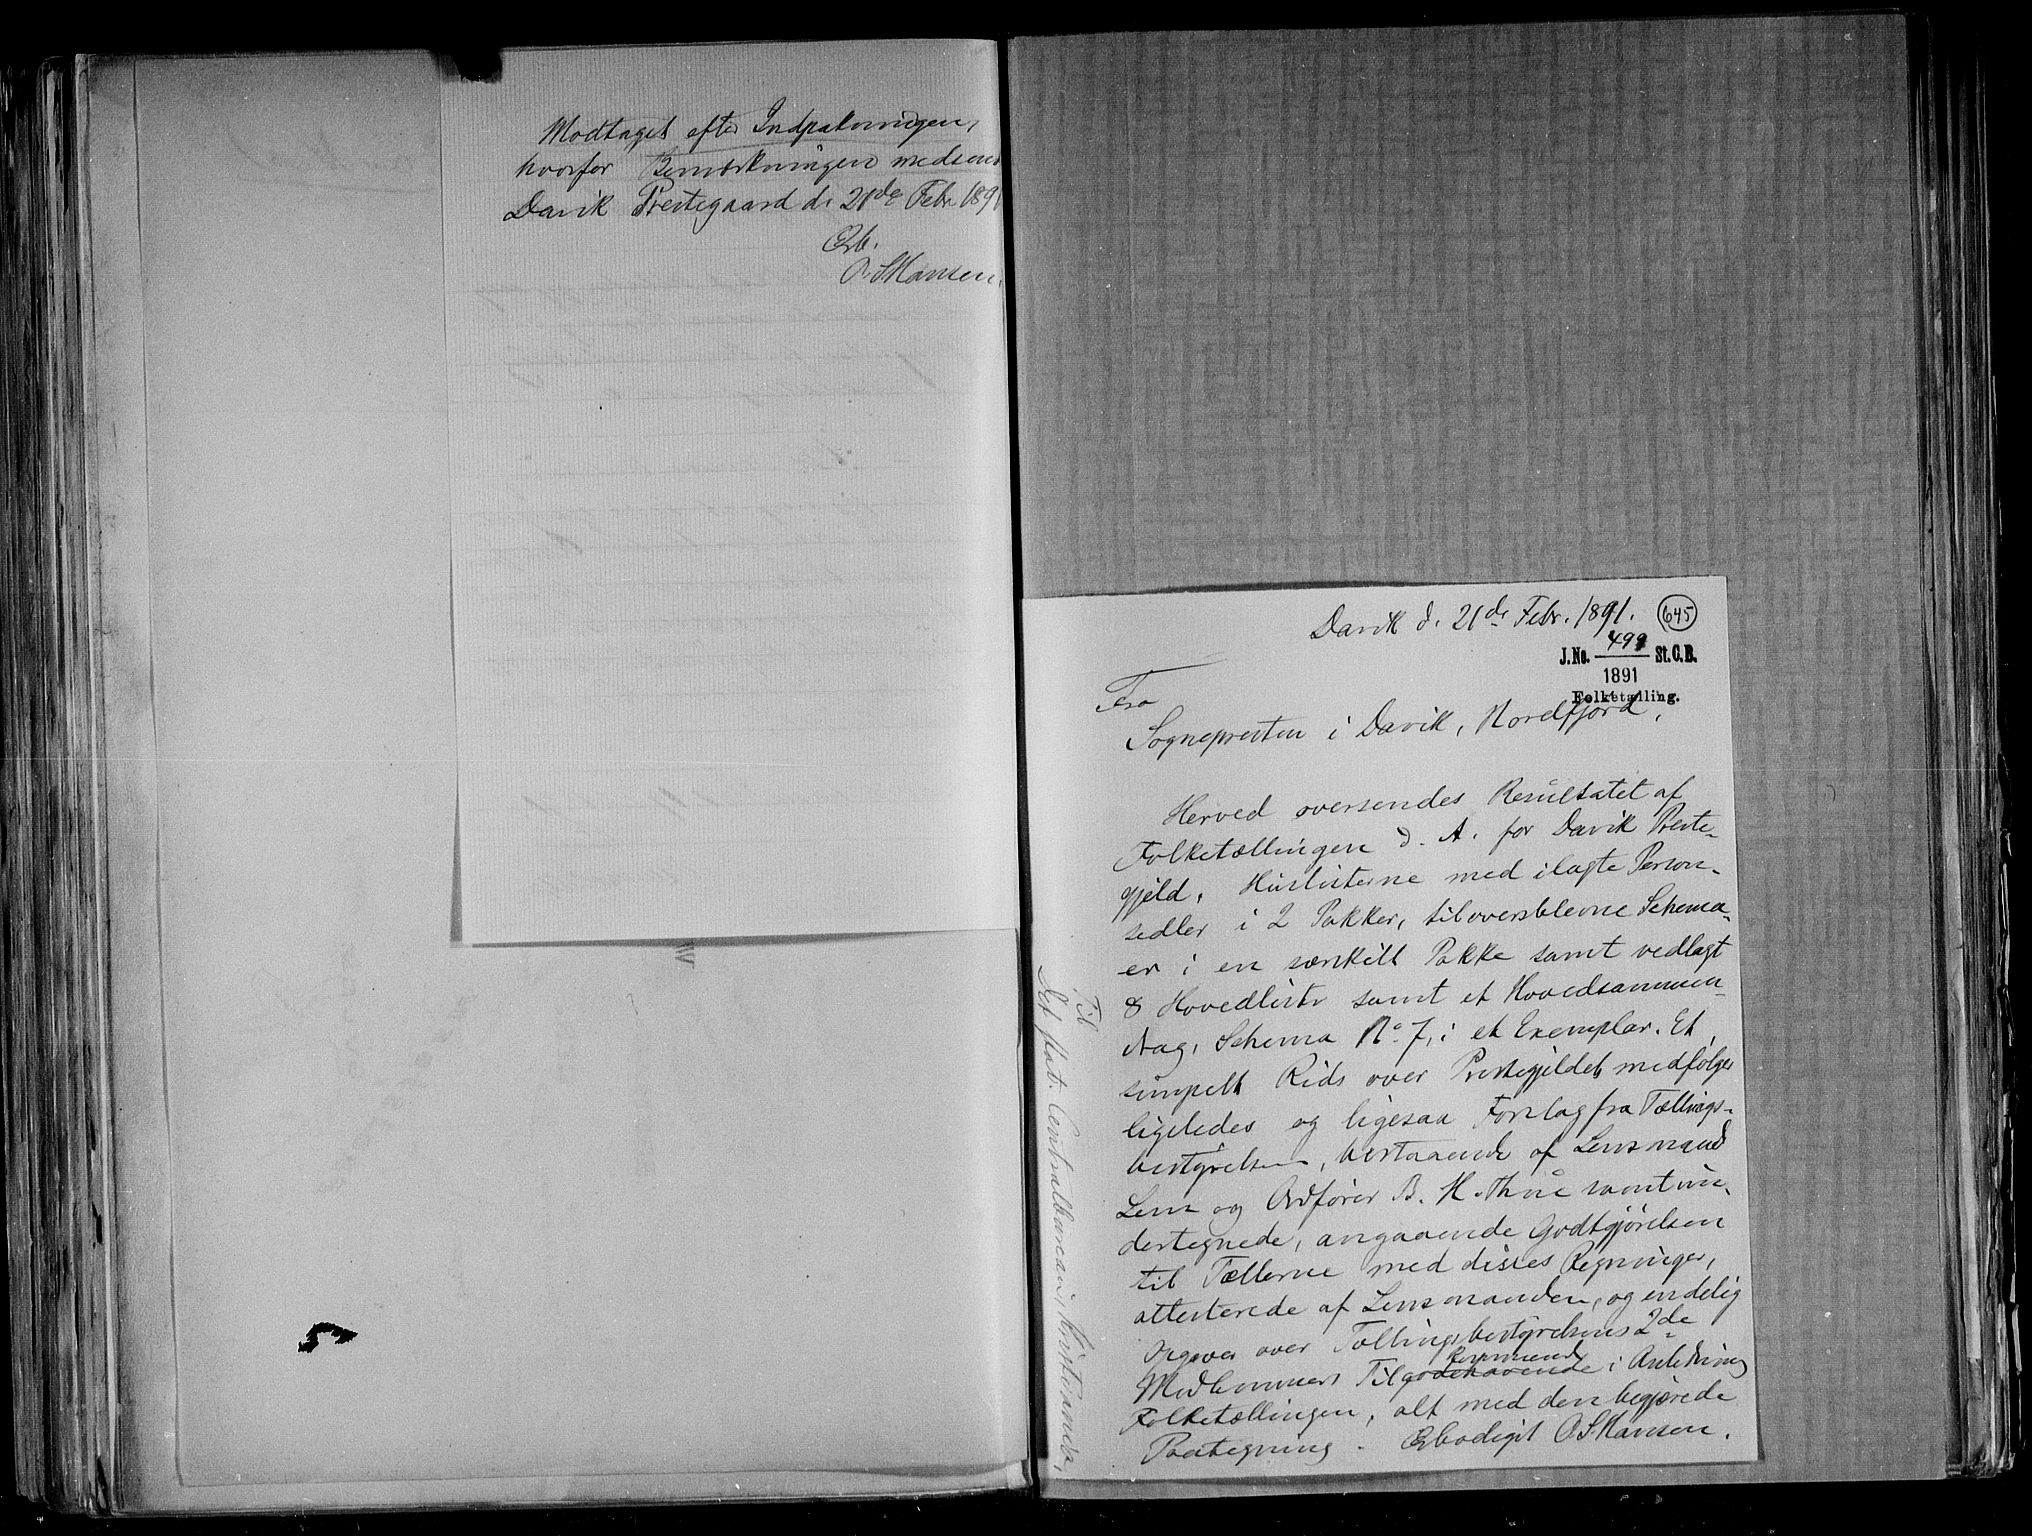 Modtaget efter Indpakningen,
hvorfor Bemærkningen medsend
Davik Prestegaard d. 21de Febr 1891
Erb.
O. S. Hansen.
Davik d. 21de Febr. 1891.
645
J.No. 499 St.C.B.
1891
Folketælling.
Fra
Sognepresten i Davik, Nordfjord,
Herved oversendes Resultatet af
Folketællingen d. A. for Davik Preste-
gjeld. Huslisterne med ilagte Person-
sedler i 2 Pakker, tiloversblevne Schema-
er i en særskilt Pakke samt vedlagt
8 Hovedlister samt et Hovedsammen-
drag, Schema No. 7, i et Exemplar. Et
simpelt Rids over Prestegjeldet medfølger
ligeledes og ligesaa Forslag fra Tællings-
bestyrelsen, bestaaende af Lensmand
Lem og Ordfører B. H. Thue samt un-
dertegnede, angaaende Godtgjørelsen
til Tællerne med disses Regninger,
attesterede af Lensmanden, og endelig
Opgaver over Tællingsbestyrelsens 2de
Medlemmers Tilgodehavende i Anledning
Folketællingen, alt med den begjærede
Paategning. Ærbødigst O. S. Hansen.
Til
Det stat. Centralbureau, Kristiania,